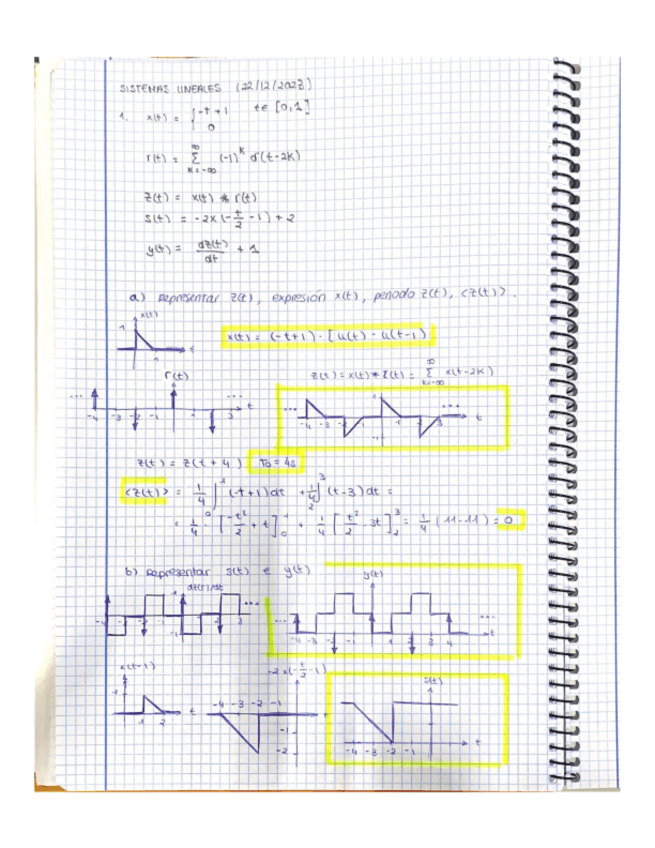 SISTEMAS LINEALES (22/12/2023)
1. x(t) = { -t+1 t∈[0,1]
0
r(t) = ∑ k=-∞ ∞ (-1)^k δ(t-2k)
z(t) = x(t) * r(t)
s(t) = -2x(-t/2 - 1) + 2
y(t) = dz(t)/dt + 1
a) Representar z(t), expresión x(t), periodo z(t), <z(t)>.
x(t)
1
1 t
x(t) = (-t+1) · [u(t) - u(t-1)
r(t)
... ...
-4 -3 -2 -1 3 t
z(t) = x(t) * r(t) = ∑ k=-∞ ∞ x(t-2k)
... ...
-4 -3 -2 1 3 t
-1
z(t) = z(t+4) T0 = 4s
<z(t)> = 1/4 ∫ 0 1 (-t+1)dt + 1/4 ∫ 2 3 (t-3)dt =
= 1/4 · [-t²/2 + t] 0 1 + 1/4 [t²/2 - 3t] 2 3 = 1/4 (11-11) = 0
b) Representar s(t) e y(t)
dz(t)/dt
1 ...
-4 -2 -1 2 3
-1
y(t)
... ...
-4 -3 -2 -1 1 2 3 4 t
x(t-1)
1
1 2 t
-2x(-t/2 - 1)
-4 -3 -2 -1 t
-1
-2
s(t)
-4 -3 -2 -1 t